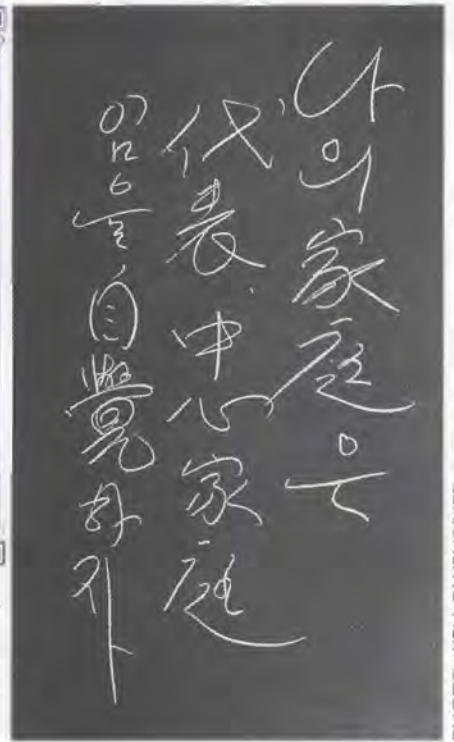 나의家庭은
代表、中心家庭
임을自覺하자